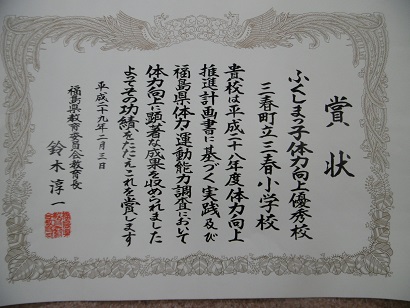 賞状
ふくしまっ子体力向上優秀校
三春町立三春小学校
貴校は平成二十八年度体力向上
推進計画書に基づく実践及び
福島県体力・運動能力調査において
体力向上に顕著な成果を収められました
よってその功績をたたえこれを賞します
平成二十九年二月三日
福島県教育委員会教育長
鈴木淳一